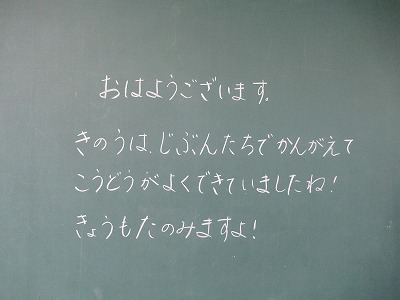 おはようございます。
きのうは、じぶんたちでかんがえて
こうどうがよくできていましたね!
きょうもたのみますよ!